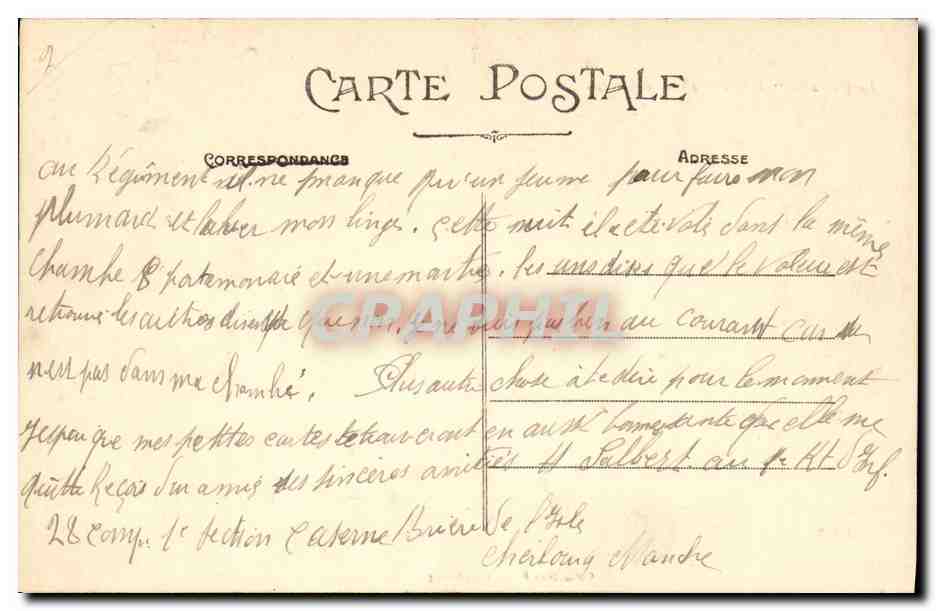 2
CARTE POSTALE
CORRESPONDANCE
ADRESSE
au Régiment il ne manque qu'un jeune pour faire mon
plumard et laver mon linge. Cette nuit il a été volé dans la même
chambe 8 portemonaie et une montre. les uns dises que le voleur est
retrouvé les autres dises que non. je ne suis pas bien au courant car se
n'est pas dans ma chambe. Plus autre chose à te dire pour le moment
J'espère que mes petites cartes te trouveront en aussi bonne sante que elle me
quitte Reçois d'un ami des sincères amitiés H Salbert au 1e Rt d'Inf.
28 comp. 1e section Caserne Brière de l'Isle
Cherbourg Manche
CPAPHIL